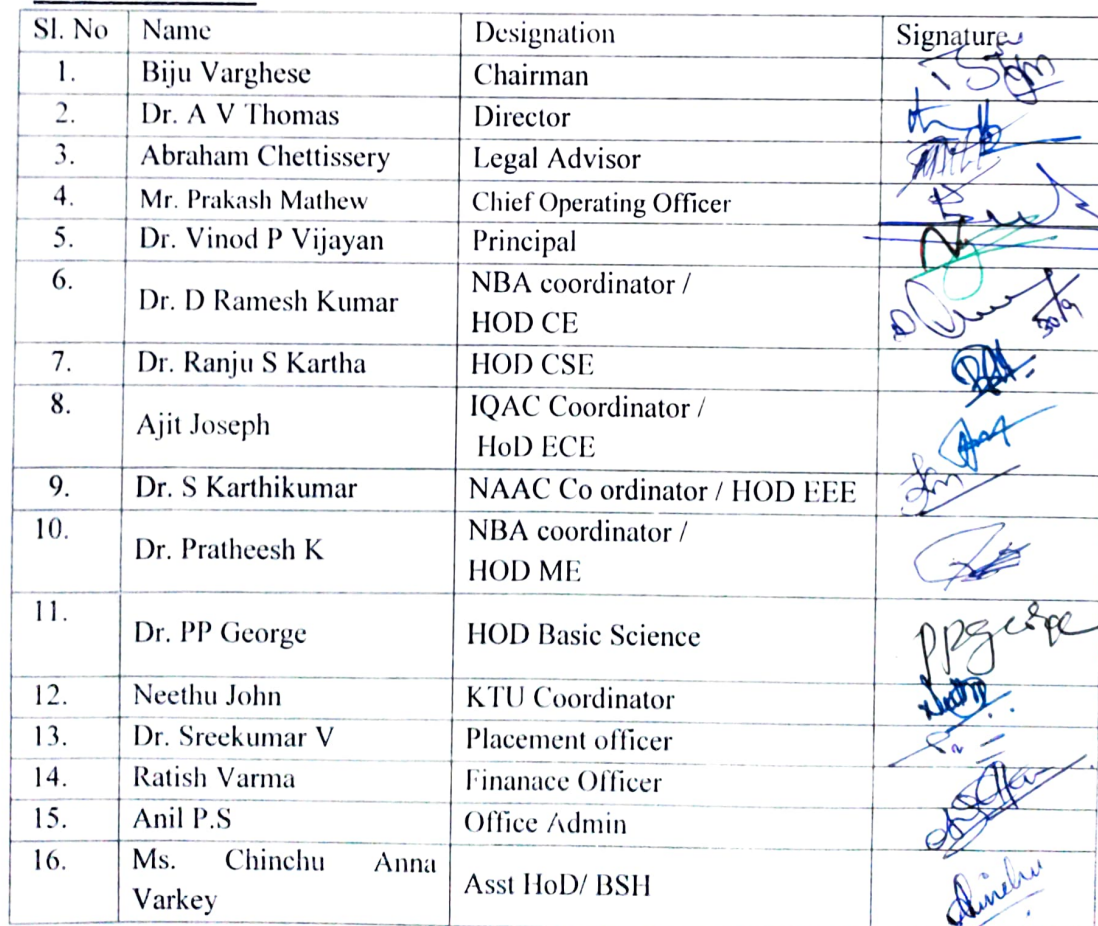 Sl. No Name Designation Signature
1. Biju Varghese Chairman
2. Dr. A V Thomas Director
3. Abraham Chettissery Legal Advisor
4. Mr. Prakash Mathew Chief Operating Officer
5. Dr. Vinod P Vijayan Principal
6. Dr. D Ramesh Kumar NBA coordinator /
HOD CE
30/9
7. Dr. Ranju S Kartha HOD CSE
8. Ajit Joseph IQAC Coordinator /
HoD ECE
9. Dr. S Karthikumar NAAC Co ordinator / HOD EEE
10. Dr. Pratheesh K NBA coordinator /
HOD ME
11. Dr. PP George HOD Basic Science ppgeorge
12. Neethu John KTU Coordinator
13. Dr. Sreekumar V Placement officer
14. Ratish Varma Finanace Officer
15. Anil P.S Office Admin
16. Ms. Chinchu Anna
Varkey Asst HoD/ BSH Chinchu